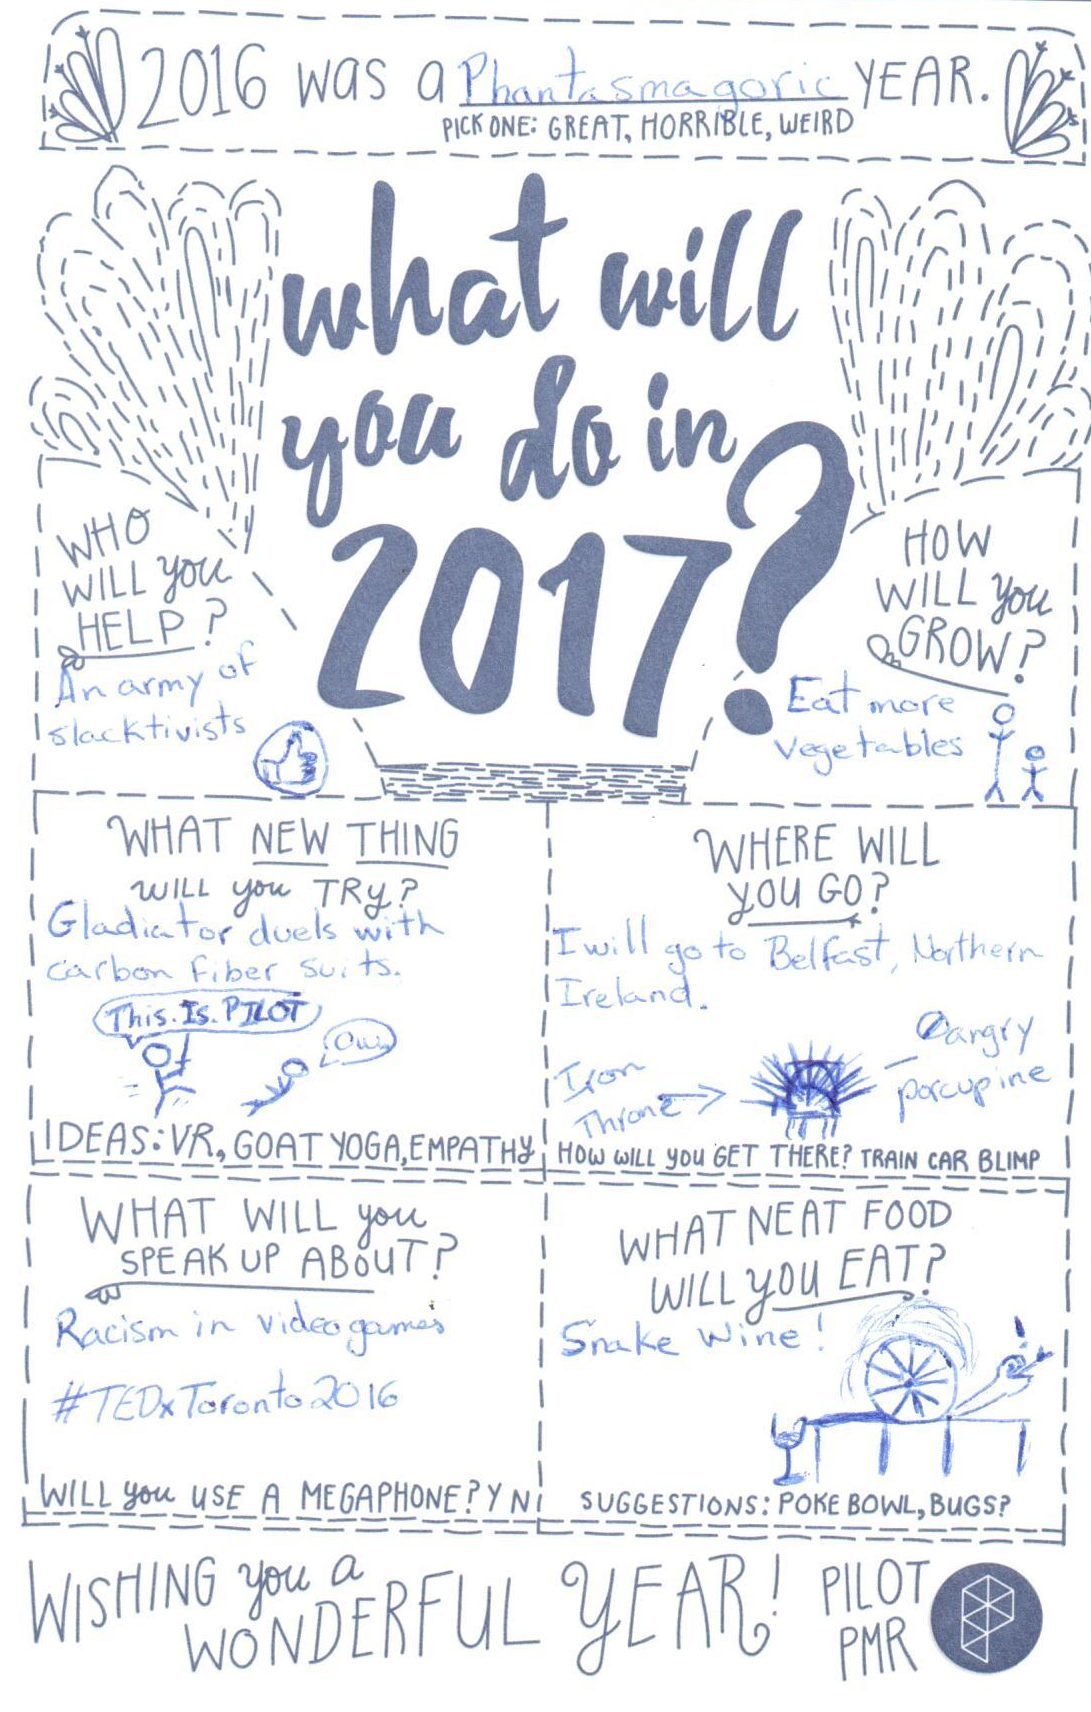 2016 WAS A Phantasmagoric YEAR.
PICK ONE: GREAT, HORRIBLE, WEIRD
what will
you do in
2017?
WHO
WILL you
HELP?
An army of
slacktivists
HOW
WILL you
GROW?
Eat more
vegetables
WHAT NEW THING
WILL you TRY?
Gladiator duels with
carbon fiber suits.
This.Is.PILOT
Oww
IDEAS: VR, GOAT YOGA, EMPATHY
WHERE WILL
YOU GO?
I will go to Belfast, Northern
Ireland.
Iron
Throne
angry
porcupine
HOW WILL YOU GET THERE? TRAIN CAR BLIMP
WHAT WILL you
SPEAK UP ABOUT?
Racism in videogames
#TEDxToronto2016
WILL you USE A MEGAPHONE? Y N
WHAT NEAT FOOD
WILL YOU EAT?
Snake Wine!
SUGGESTIONS: POKE BOWL, BUGS?
WISHING you a
WONDERFUL YEAR!
PILOT
PMR